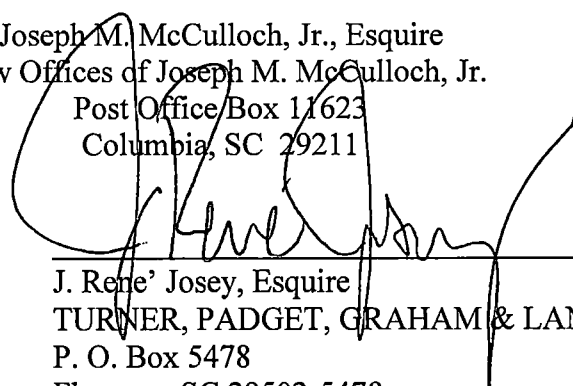 Joseph M. McCulloch, Jr., Esquire
Offices of Joseph M. McCulloch, Jr.
Post Office Box 11623
Columbia, SC 29211
J. Rene' Josey, Esquire
TURNER, PADGET, GRAHAM & LAN
P. O. Box 5478
SC 29502-5478